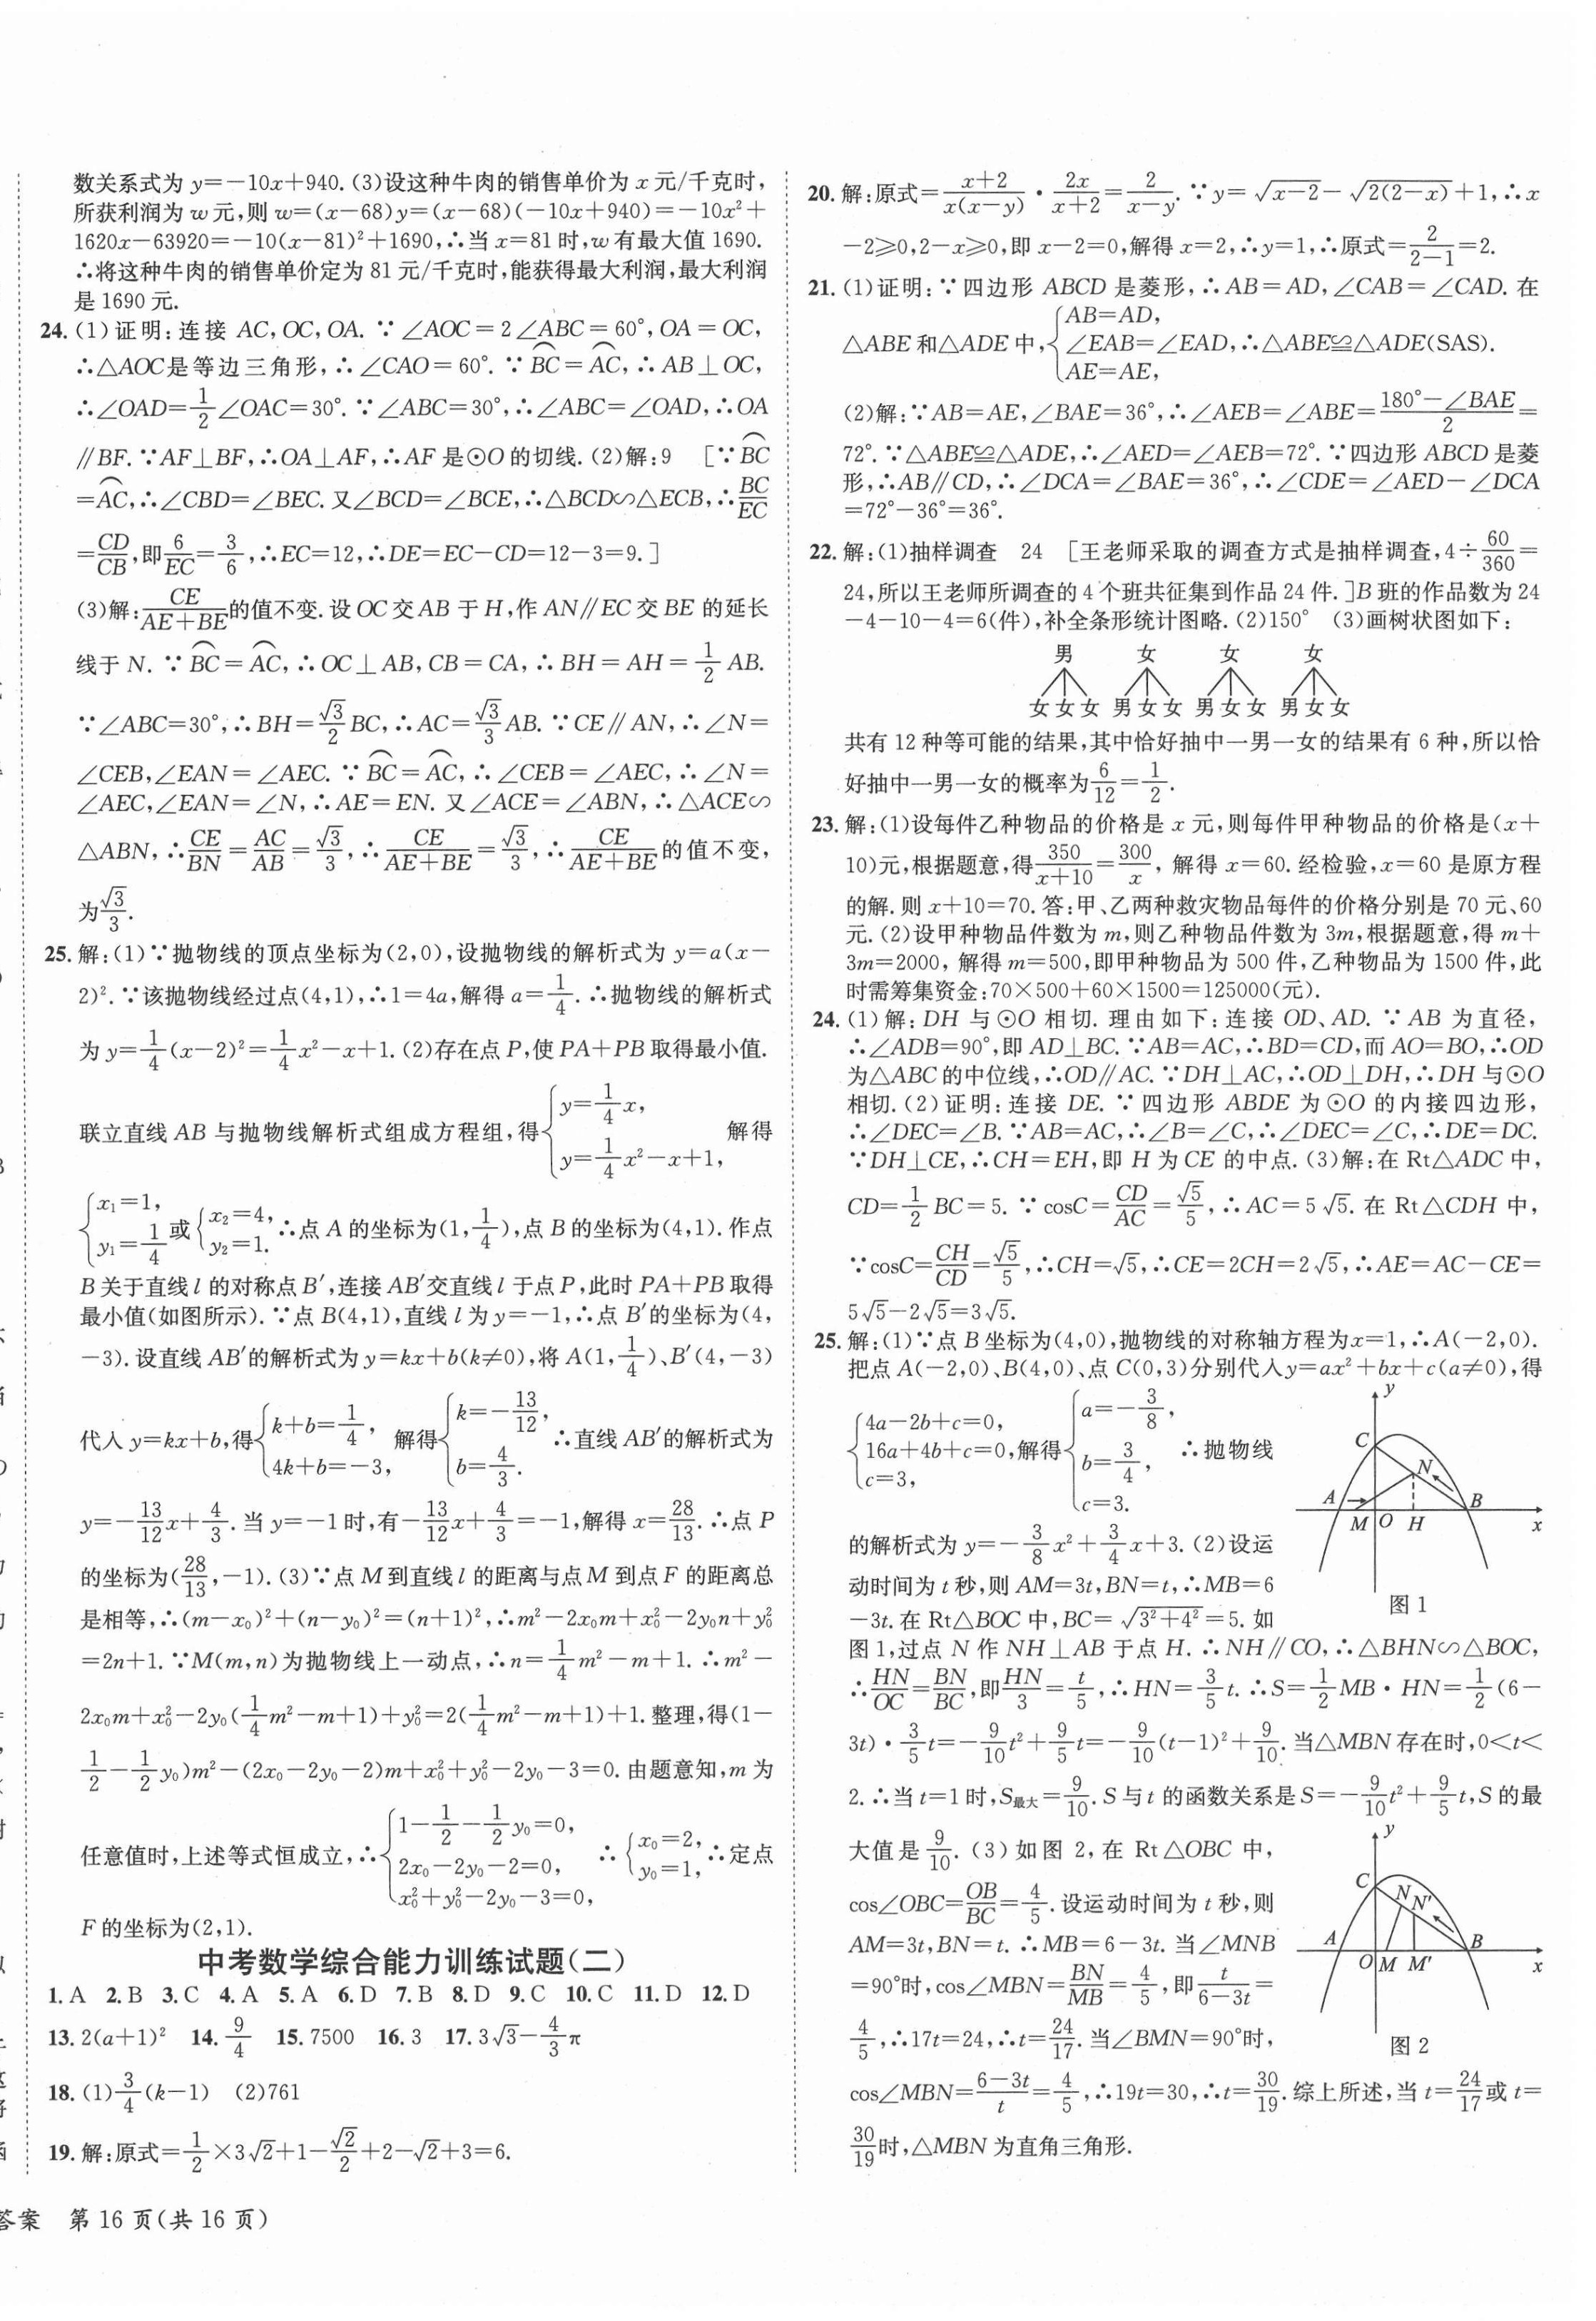 数关系式为 y=-10x+940. (3)设这种牛肉的销售单价为 x 元/千克时,
所获利润为 w 元,则 w=(x-68)y=(x-68)(-10x+940)=-10x²+
1620x-63920=-10(x-81)²+1690,∴当 x=81 时,w 有最大值 1690.
∴将这种牛肉的销售单价定为 81 元/千克时,能获得最大利润,最大利润
是 1690 元.
24. (1)证明:连接 AC,OC,OA. ∵∠AOC=2∠ABC=60°,OA=OC,
∴△AOC是等边三角形,∴∠CAO=60°. ∵⌒BC=⌒AC,∴AB⊥OC,
∴∠OAD=1/2∠OAC=30°. ∵∠ABC=30°,∴∠ABC=∠OAD,∴OA
∥BF. ∵AF⊥BF,∴OA⊥AF,∴AF 是⊙O 的切线. (2)解:9 [∵⌒BC
=⌒AC,∴∠CBD=∠BEC. 又∠BCD=∠BCE,∴△BCD∽△ECB,∴BC/EC
=CD/CB,即6/EC=3/6,∴EC=12,∴DE=EC-CD=12-3=9.]
(3)解:CE/(AE+BE)的值不变. 设 OC 交 AB 于 H,作 AN∥EC 交 BE 的延长
线于 N. ∵⌒BC=⌒AC,∴OC⊥AB,CB=CA,∴BH=AH=1/2 AB.
∵∠ABC=30°,∴BH=√3/2 BC,∴AC=√3/3 AB. ∵CE∥AN,∴∠N=
∠CEB,∠EAN=∠AEC. ∵⌒BC=⌒AC,∴∠CEB=∠AEC,∴∠N=
∠AEC,∠EAN=∠N,∴AE=EN. 又∠ACE=∠ABN,∴△ACE∽
△ABN,∴CE/BN=AC/AB=√3/3,∴CE/(AE+BE)=√3/3,∴CE/(AE+BE)的值不变,
为√3/3.
25. 解:(1)∵抛物线的顶点坐标为(2,0),设抛物线的解析式为 y=a(x-
2)². ∵该抛物线经过点(4,1),∴1=4a,解得 a=1/4. ∴抛物线的解析式
为 y=1/4(x-2)²=1/4x²-x+1. (2)存在点 P,使 PA+PB 取得最小值.
联立直线 AB 与抛物线解析式组成方程组,得{y=1/4x, y=1/4x²-x+1, 解得
{x₁=1, y₁=1/4 或{x₂=4, y₂=1. ∴点 A 的坐标为(1,1/4),点 B 的坐标为(4,1). 作点
B 关于直线 l 的对称点 B′,连接 AB′交直线 l 于点 P,此时 PA+PB 取得
最小值(如图所示). ∵点 B(4,1),直线 l 为 y=-1,∴点 B′的坐标为(4,
-3). 设直线 AB′的解析式为 y=kx+b(k≠0),将 A(1,1/4)、B′(4,-3)
代入 y=kx+b,得{k+b=1/4, 4k+b=-3, 解得{k=-13/12, b=4/3. ∴直线 AB′的解析式为
y=-13/12x+4/3. 当 y=-1 时,有-13/12x+4/3=-1,解得 x=28/13. ∴点 P
的坐标为(28/13,-1). (3)∵点 M 到直线 l 的距离与点 M 到点 F 的距离总
是相等,∴(m-x₀)²+(n-y₀)²=(n+1)²,∴m²-2x₀m+x₀²-2y₀n+y₀²
=2n+1. ∵M(m,n)为抛物线上一动点,∴n=1/4m²-m+1. ∴m²-
2x₀m+x₀²-2y₀(1/4m²-m+1)+y₀²=2(1/4m²-m+1)+1. 整理,得(1-
1/2-1/2y₀)m²-(2x₀-2y₀-2)m+x₀²+y₀²-2y₀-3=0. 由题意知,m 为
任意值时,上述等式恒成立,∴{1-1/2-1/2y₀=0, 2x₀-2y₀-2=0, x₀²+y₀²-2y₀-3=0, ∴{x₀=2, y₀=1, ∴定点
F 的坐标为(2,1).
中考数学综合能力训练试题(二)
1. A 2. B 3. C 4. A 5. A 6. D 7. B 8. D 9. C 10. C 11. D 12. D
13. 2(a+1)² 14. 9/4 15. 7500 16. 3 17. 3√3-4/3π
18. (1)3/4(k-1) (2)761
19. 解:原式=1/2×3√2+1-√2/2+2-√2+3=6.
答案 第 16 页(共 16 页)
20. 解:原式=(x+2)/(x(x-y))·2x/(x+2)=2/(x-y). ∵y=√(x-2)-√(2(2-x))+1,∴x
-2≥0,2-x≥0,即 x-2=0,解得 x=2,∴y=1,∴原式=2/(2-1)=2.
21. (1)证明:∵四边形 ABCD 是菱形,∴AB=AD,∠CAB=∠CAD. 在
△ABE 和△ADE 中,{AB=AD, ∠EAB=∠EAD, AE=AE, ∴△ABE≌△ADE(SAS).
(2)解:∵AB=AE,∠BAE=36°,∴∠AEB=∠ABE=(180°-∠BAE)/2=
72°. ∵△ABE≌△ADE,∴∠AED=∠AEB=72°. ∵四边形 ABCD 是菱
形,∴AB∥CD,∴∠DCA=∠BAE=36°,∴∠CDE=∠AED-∠DCA
=72°-36°=36°.
22. 解:(1)抽样调查 24 [王老师采取的调查方式是抽样调查,4÷60/360=
24,所以王老师所调查的 4 个班共征集到作品 24 件.]B 班的作品数为 24
-4-10-4=6(件),补全条形统计图略. (2)150° (3)画树状图如下:
男 女 女 女
女女女 男女女 男女女 男女女
共有 12 种等可能的结果,其中恰好抽中一男一女的结果有 6 种,所以恰
好抽中一男一女的概率为6/12=1/2.
23. 解:(1)设每件乙种物品的价格是 x 元,则每件甲种物品的价格是(x+
10)元,根据题意,得350/(x+10)=300/x, 解得 x=60. 经检验,x=60 是原方程
的解. 则 x+10=70. 答:甲、乙两种救灾物品每件的价格分别是 70 元、60
元. (2)设甲种物品件数为 m,则乙种物品件数为 3m,根据题意,得 m+
3m=2000, 解得 m=500,即甲种物品为 500 件,乙种物品为 1500 件,此
时需筹集资金:70×500+60×1500=125000(元).
24. (1)解:DH 与⊙O 相切. 理由如下:连接 OD、AD. ∵AB 为直径,
∴∠ADB=90°,即 AD⊥BC. ∵AB=AC,∴BD=CD,而 AO=BO,∴OD
为△ABC 的中位线,∴OD∥AC. ∵DH⊥AC,∴OD⊥DH,∴DH 与⊙O
相切. (2)证明:连接 DE. ∵四边形 ABDE 为⊙O 的内接四边形,
∴∠DEC=∠B. ∵AB=AC,∴∠B=∠C,∴∠DEC=∠C,∴DE=DC.
∵DH⊥CE,∴CH=EH,即 H 为 CE 的中点. (3)解:在 Rt△ADC 中,
CD=1/2 BC=5. ∵cosC=CD/AC=√5/5,∴AC=5√5. 在 Rt△CDH 中,
∵cosC=CH/CD=√5/5,∴CH=√5,∴CE=2CH=2√5,∴AE=AC-CE=
5√5-2√5=3√5.
25. 解:(1)∵点 B 坐标为(4,0),抛物线的对称轴方程为x=1,∴A(-2,0).
把点 A(-2,0)、B(4,0)、点 C(0,3)分别代入y=ax²+bx+c(a≠0),得
{4a-2b+c=0, 16a+4b+c=0, c=3, 解得{a=-3/8, b=3/4, c=3. ∴抛物线
的解析式为 y=-3/8x²+3/4x+3. (2)设运
动时间为 t 秒,则 AM=3t,BN=t,∴MB=6
-3t. 在 Rt△BOC 中,BC=√(3²+4²)=5. 如
y C N A B M O H x
图 1
图 1,过点 N 作 NH⊥AB 于点 H. ∴NH∥CO,∴△BHN∽△BOC,
∴HN/OC=BN/BC,即HN/3=t/5,∴HN=3/5t. ∴S=1/2MB·HN=1/2(6-
3t)·3/5t=-9/10t²+9/5t=-9/10(t-1)²+9/10. 当△MBN 存在时,0<t<
2. ∴当 t=1 时,S最大=9/10. S 与 t 的函数关系是 S=-9/10t²+9/5t,S 的最
大值是 9/10. (3)如图 2,在 Rt△OBC 中,
cos∠OBC=OB/BC=4/5. 设运动时间为 t 秒,则
AM=3t,BN=t. ∴MB=6-3t. 当∠MNB
=90°时,cos∠MBN=BN/MB=4/5,即t/(6-3t)=
4/5,∴17t=24,∴t=24/17. 当∠BMN=90°时,
y C N N′ A B O M M′ x
图 2
cos∠MBN=(6-3t)/t=4/5,∴19t=30,∴t=30/19. 综上所述,当 t=24/17或 t=
30/19时,△MBN 为直角三角形.